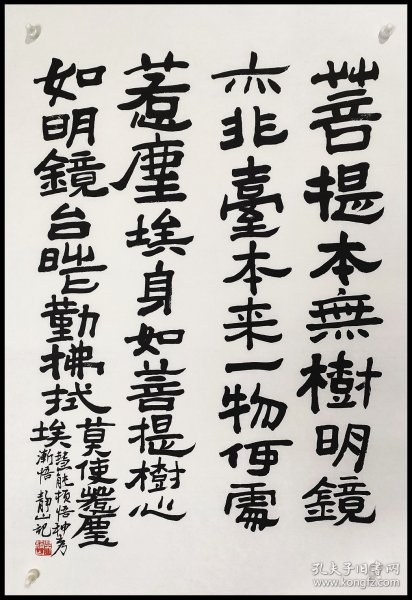 菩提本無樹明鏡
亦非臺本来一物何處
惹塵埃身如菩提樹心
如明鏡台時〻勤拂拭
莫使惹塵
埃
慧能頓悟神秀
漸悟 靜山記
孔夫子旧书网
www.kongfz.com